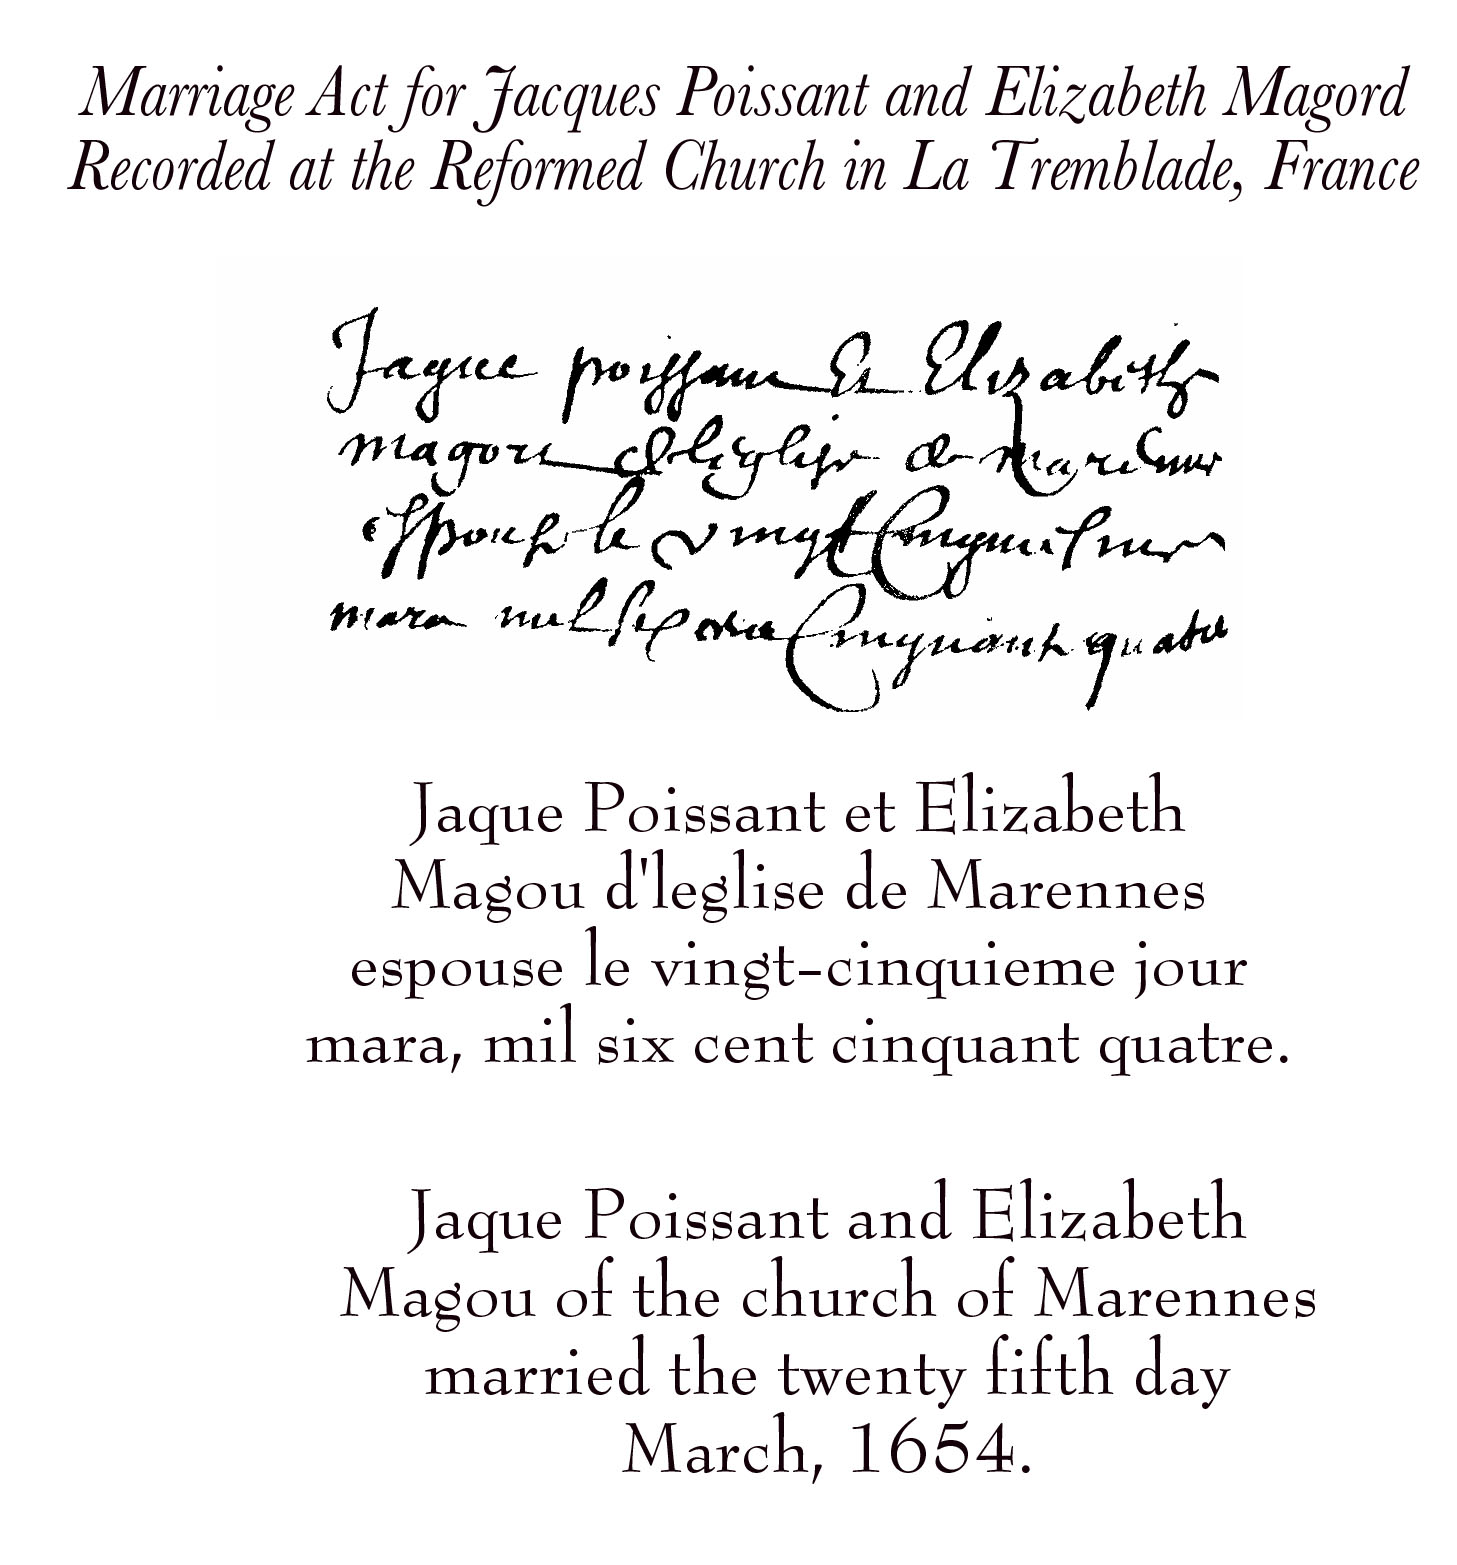 Marriage Act for Jacques Poissant and Elizabeth Magord
Recorded at the Reformed Church in La Tremblade, France
Jaque poissant Et Elizabeth
magou de leglise de marennes
espouse le vingt Cinquiesme
mara mil six cent Cinquant quatre
Jaque Poissant et Elizabeth
Magou d'leglise de Marennes
espouse le vingt-cinquieme jour
mara, mil six cent cinquant quatre.
Jaque Poissant and Elizabeth
Magou of the church of Marennes
married the twenty fifth day
March, 1654.